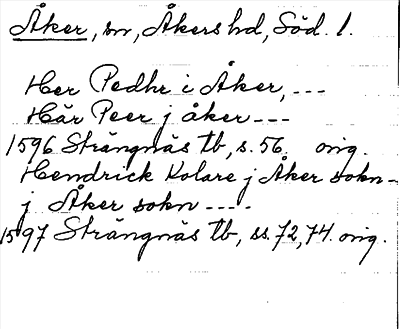 Åker, sn, Åkers hd, Söd. l.
Her Pedhr i Åker, ---
Här Peer j åker ---
1596 Strängnäs tb, s. 56. orig.
Hendrick Kolare j Åker sokn -
j Åker sokn ----
1597 Strängnäs tb, ss. 72, 74. orig.